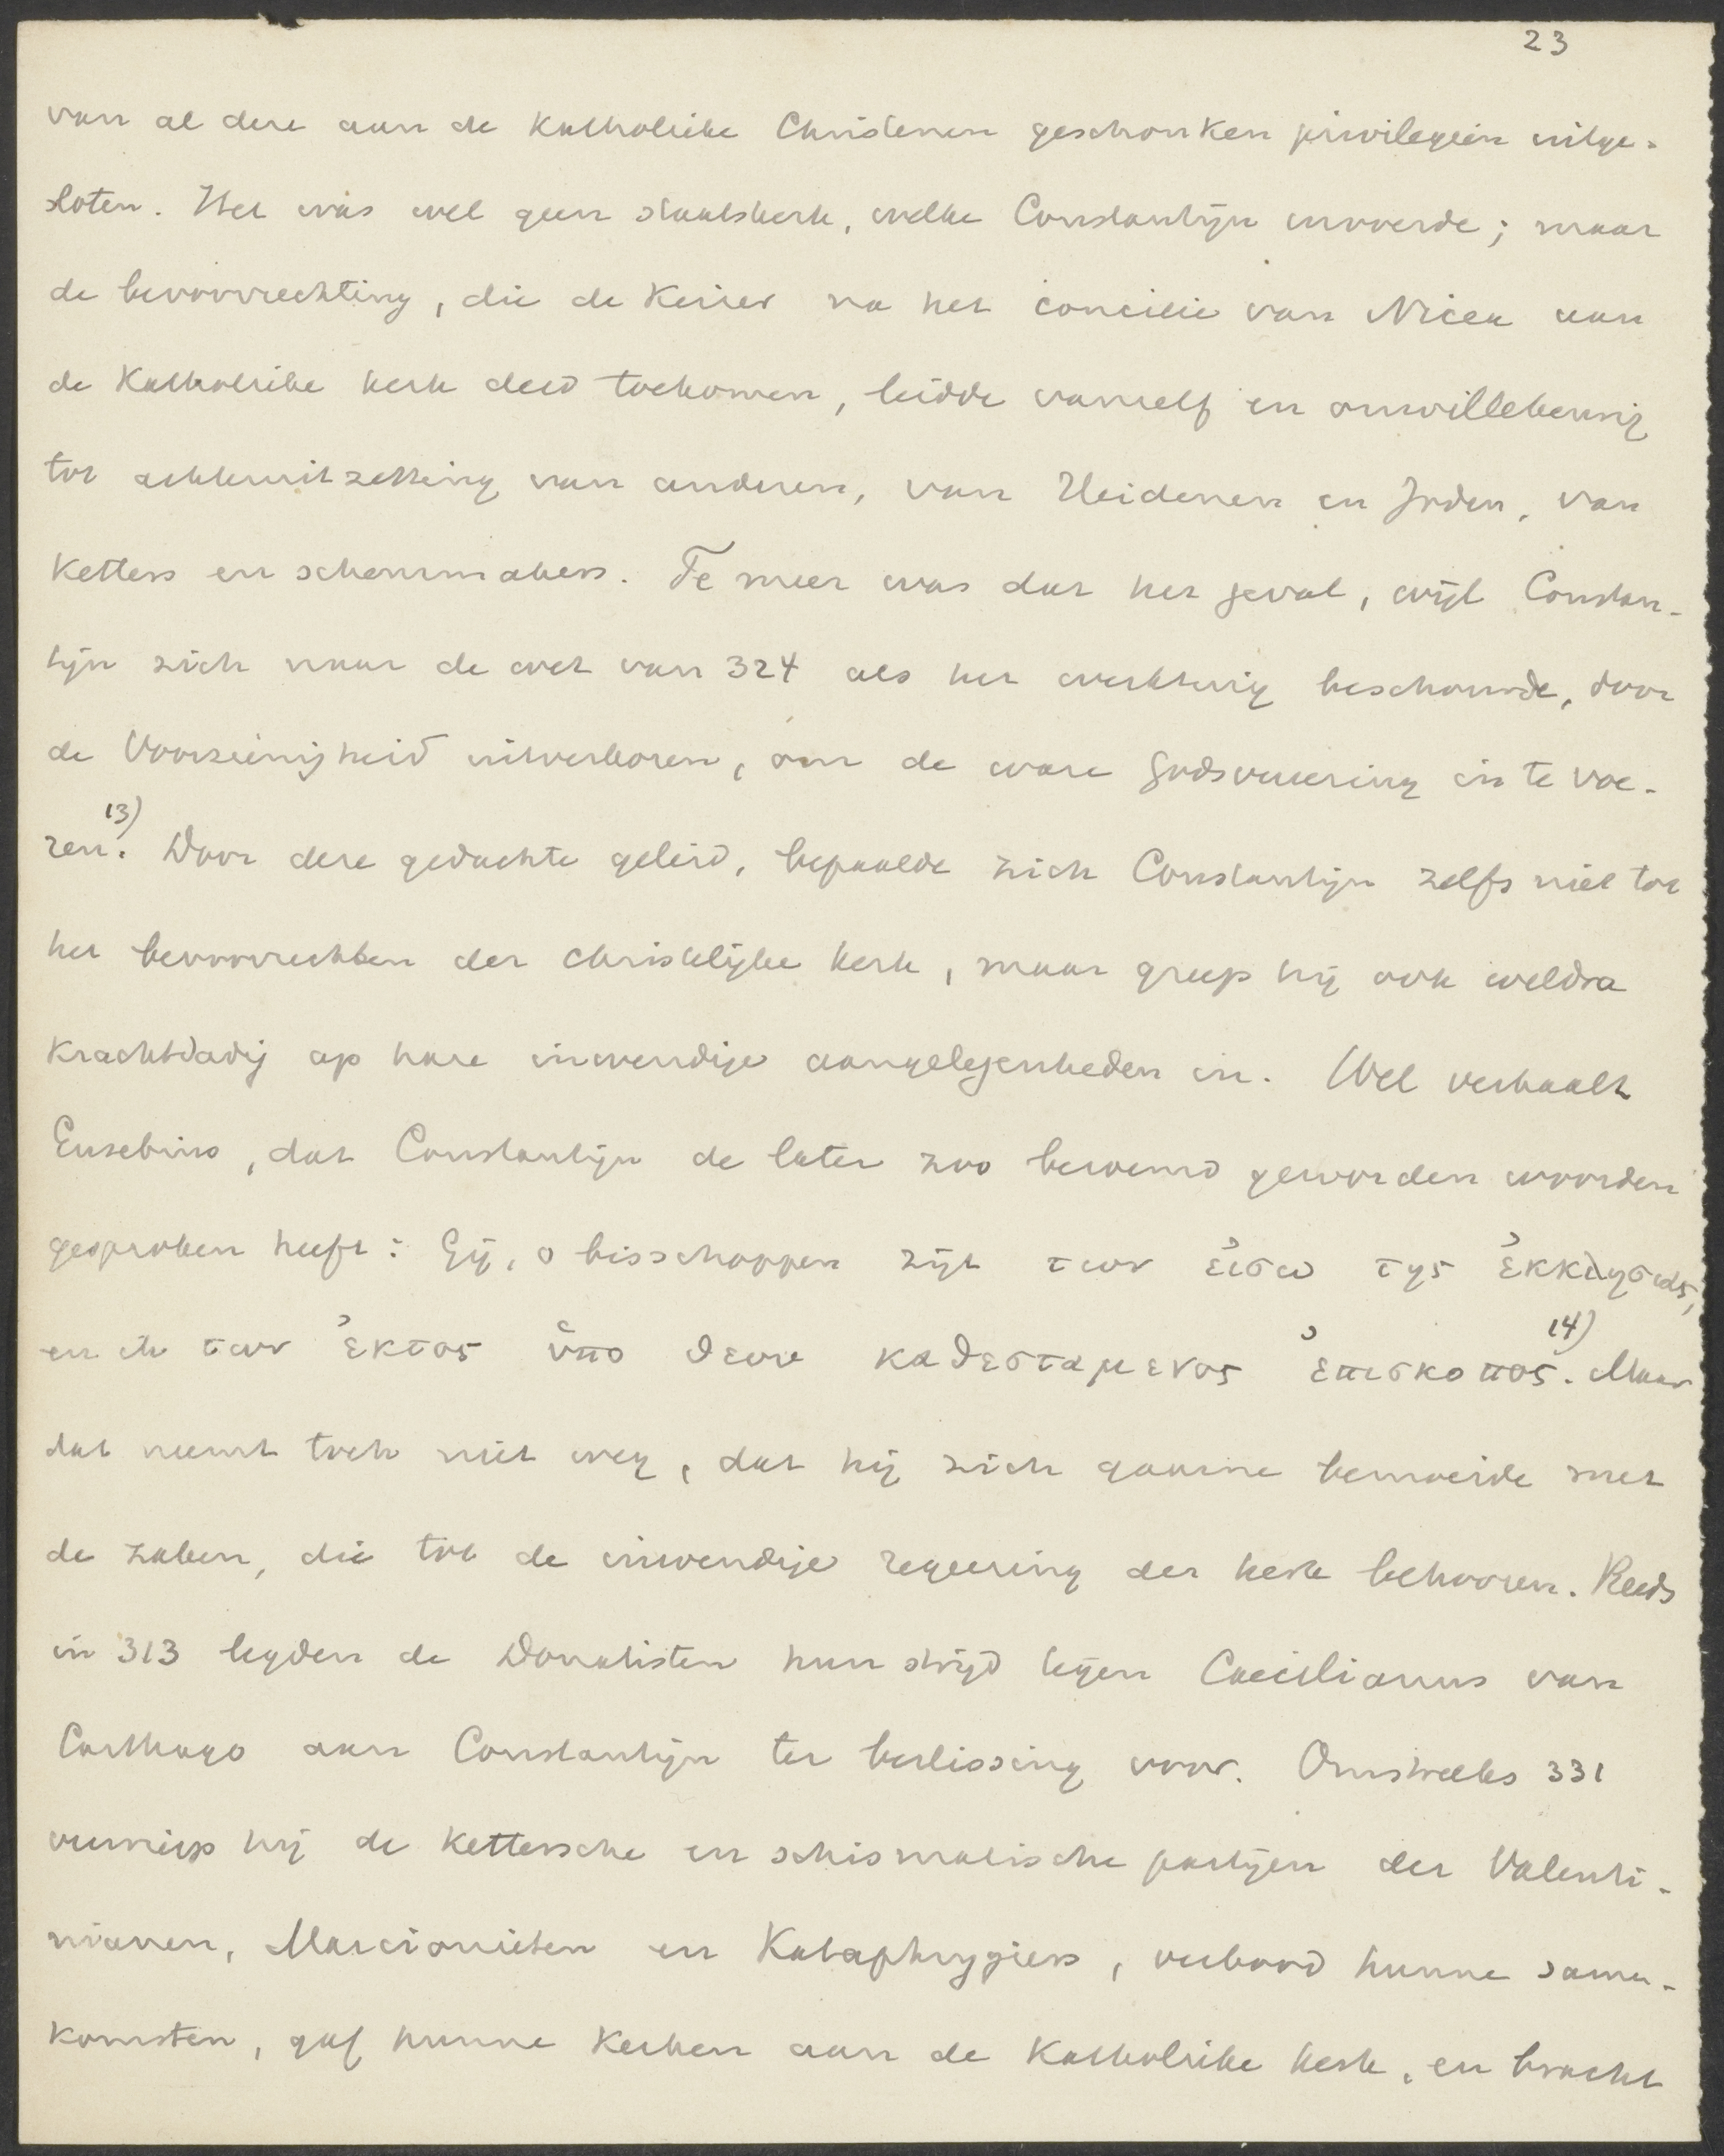 23
van al deze aan de Katholieke Christenen geschonken privilegiën uitge-
sloten. Het was wel geen staatskerk, welke Constantijn invoerde; maar
de bevoorrechting, die de Keizer na het concilie van Nicea aan
de Katholieke kerk deed toekomen, leidde vanzelf en onwillekeurig
tot achteruitzetting van anderen, van Heidenen en Joden, van
Ketters en scheurmakers. Te meer was dat het geval, wijl Constan-
tijn zich naar de wet van 324 als het werktuig beschouwde, door
de Voorzienigheid uitverkoren, om de ware godsvereering in te voe-
ren.13) Door deze gedachte geleid, bepaalde zich Constantijn zelfs niet tot
het bevoorrechten der christelijke kerk, maar greep hij ook weldra
krachtdadig op hare inwendige aangelegenheden in. Wel verhaalt
Eusebius, dat Constantijn de later zoo beroemd geworden woorden
gesproken heeft: Gij, o bisschoppen zijt των ἐισω της ἐκκλησιας,
en ik των ἐκτος ὑπο θεου καθεσταμενος ἐπισκοπος.14) Maar
dat neemt toch niet weg, dat hij zich gaarne bemoeide met
de zaken, die tot de inwendige regeering der kerk behooren. Reeds
in 313 legden de Donatisten hun strijd tegen Caecilianus van
Carthago aan Constantijn ter beslissing voor. Omstreeks 331
verwierp hij de kettersche en schismatische partijen der Valenti-
nianen, Marcionieten en Kataphrygiers, verbood hunne samen-
komsten, gaf hunne Kerken aan de Katholieke kerk, en bracht